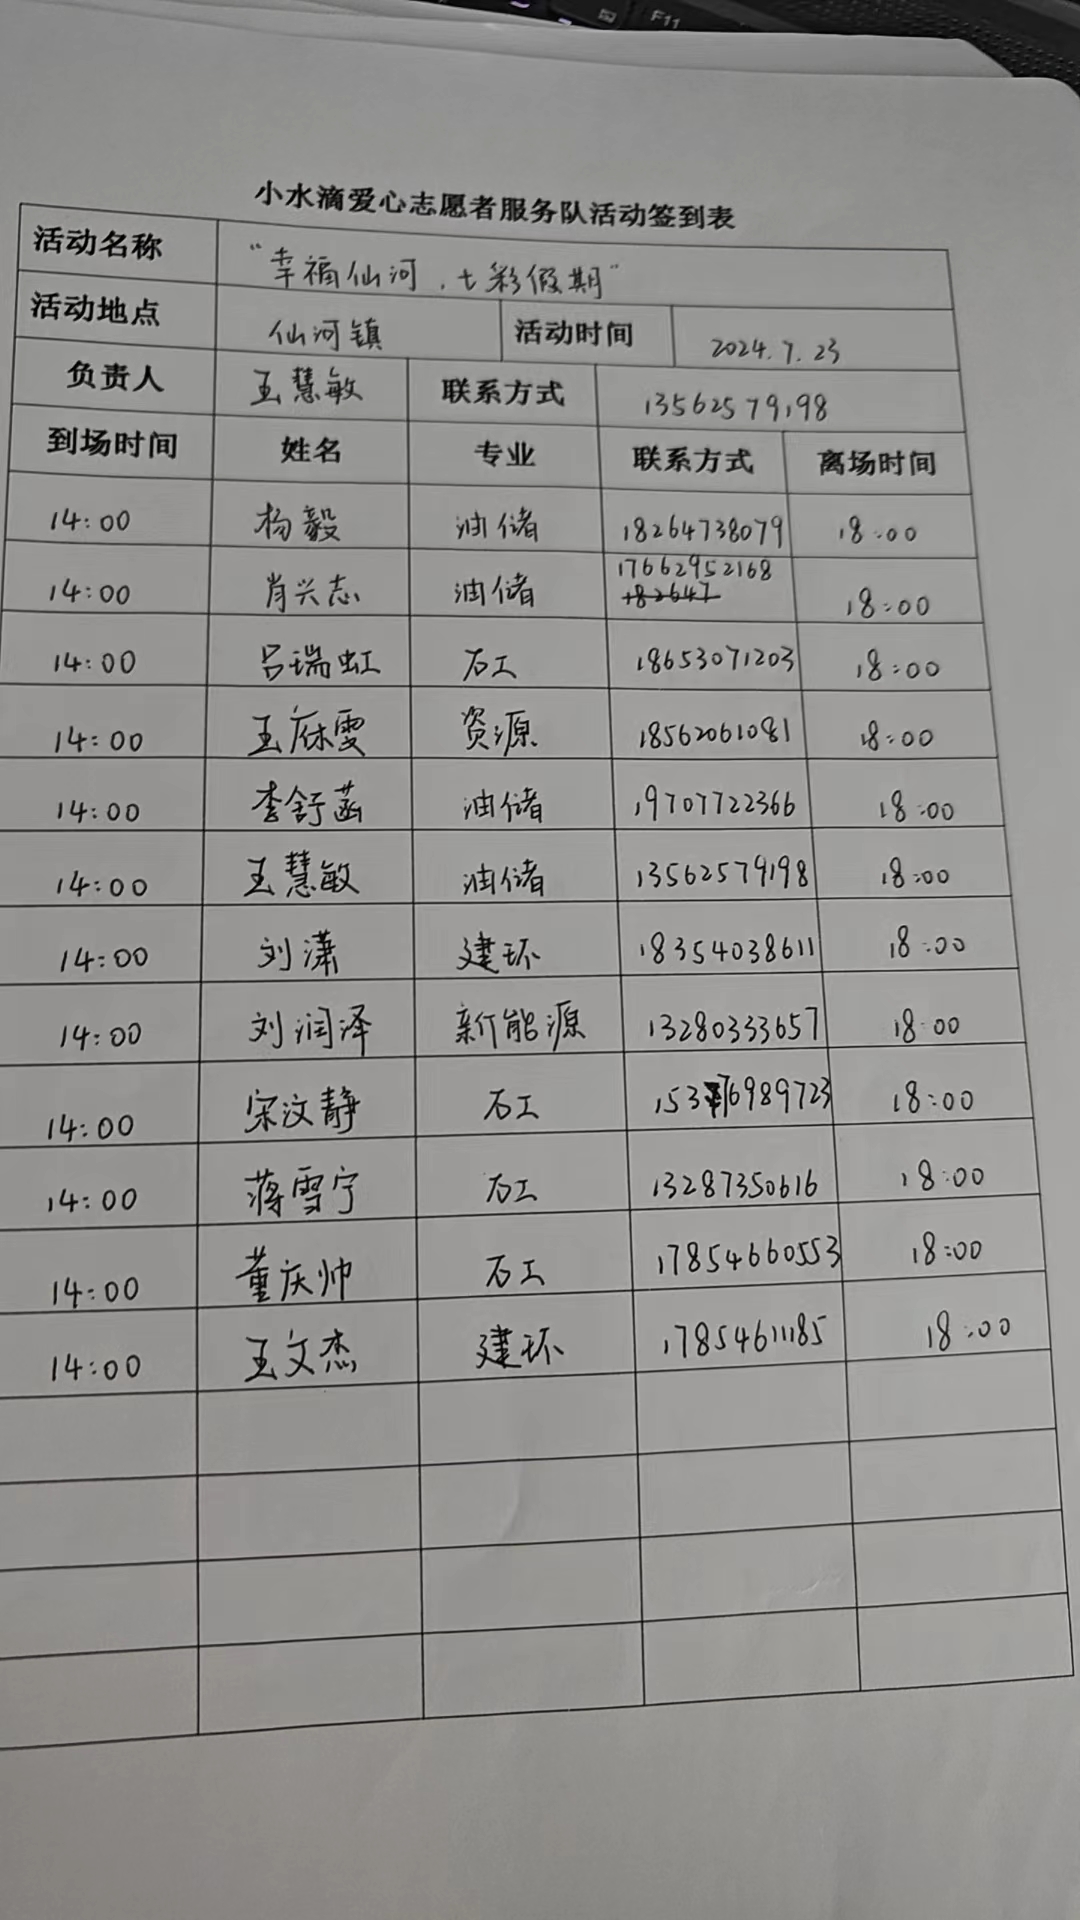 F11
小水滴爱心志愿者服务队活动签到表
活动名称 "幸福仙河,七彩假期"
活动地点 仙河镇 活动时间 2024.7.23
负责人 王慧敏 联系方式 13562579198
到场时间 姓名 专业 联系方式 离场时间
14:00 杨毅 油储 18264738079 18:00
14:00 肖兴志 油储 17662952168 18:00
14:00 吕瑞虹 石工 18653071203 18:00
14:00 王庥雯 资源 18562061081 18:00
14:00 李舒菡 油储 19707722366 18:00
14:00 王慧敏 油储 13562579198 18:00
14:00 刘潇 建环 18354038611 18:00
14:00 刘润泽 新能源 13280333657 18:00
14:00 宋汶静 石工 18:00
14:00 蒋雪宁 石工 13287350616 18:00
14:00 董庆帅 石工 17854660553 18:00
14:00 王文杰 建环 17854611185 18:00